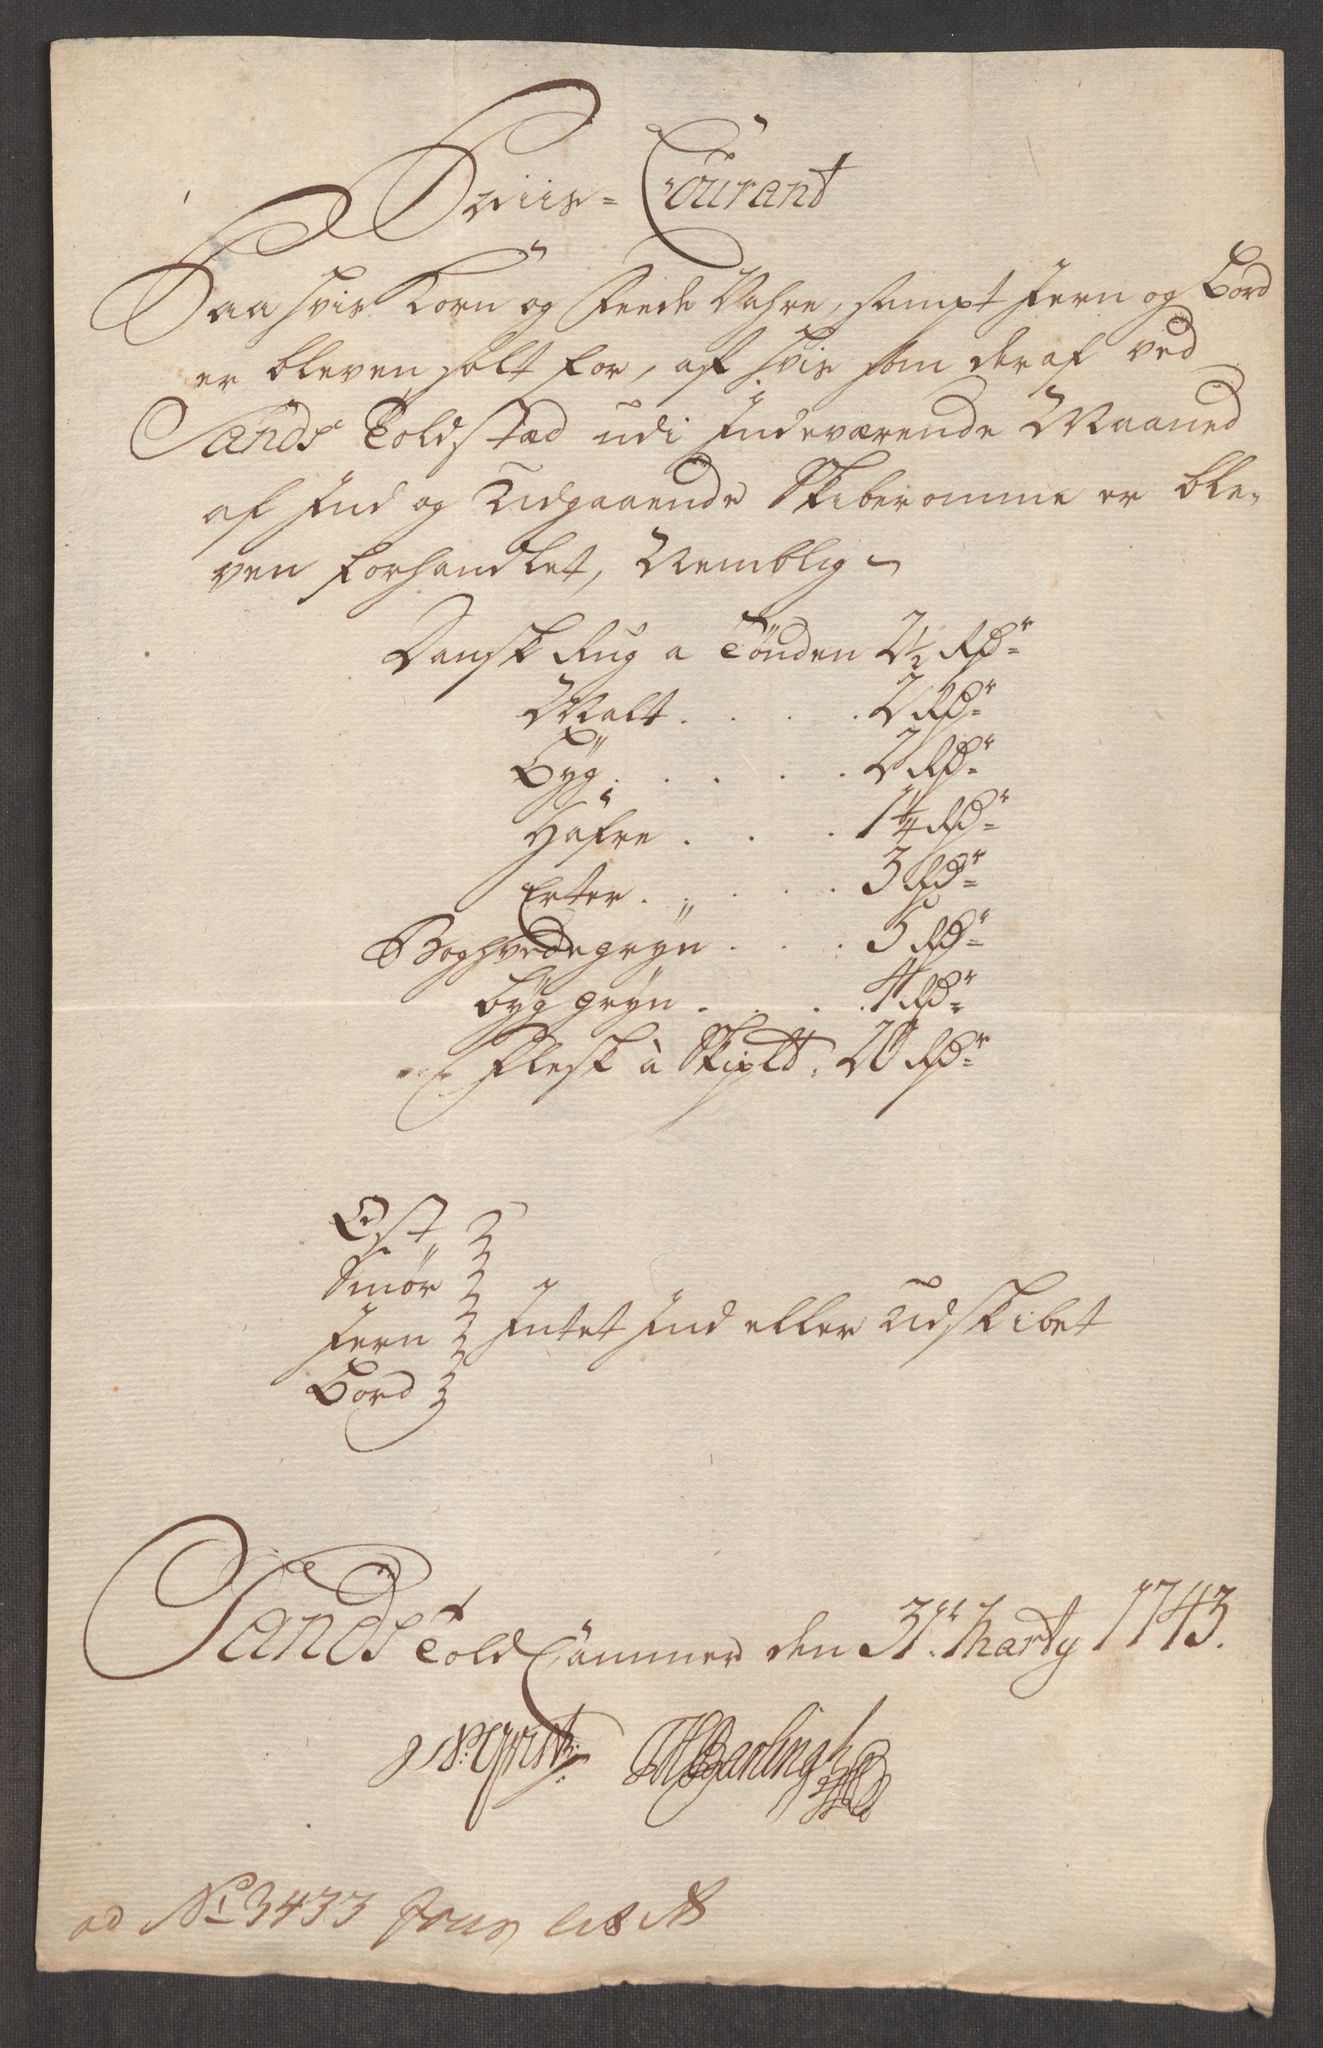 Priis-Courant
Paa hvis Korn og Feede Vahre, sampt Jern og Bord
er bleven holt for, af hvis som deraf ved
Sands Toldstæd udi Indeværende Maaned
af Ind og Udgaaende Skiberomme er ble-
ven forhandlet, Nemblig
Dansk Rug a Tönden 2½ Rdr
Malt . . . . 2 Rdr
Byg . . . . 2 Rdr
Hafre . . . 1¼ Rdr
Erter . . . . 3 Rdr
Boghvedegryn . . . 5 Rdr
Byg gryn . . . . 4 Rdr
Flesk à Skipld. 20 Rdr
Ost
Smör
Jern Intet Ind eller Udskibet
Bord
Sands Told Cammer den 31te Marty 1743.
Barlingh
ad No 3433 Jour Lit A